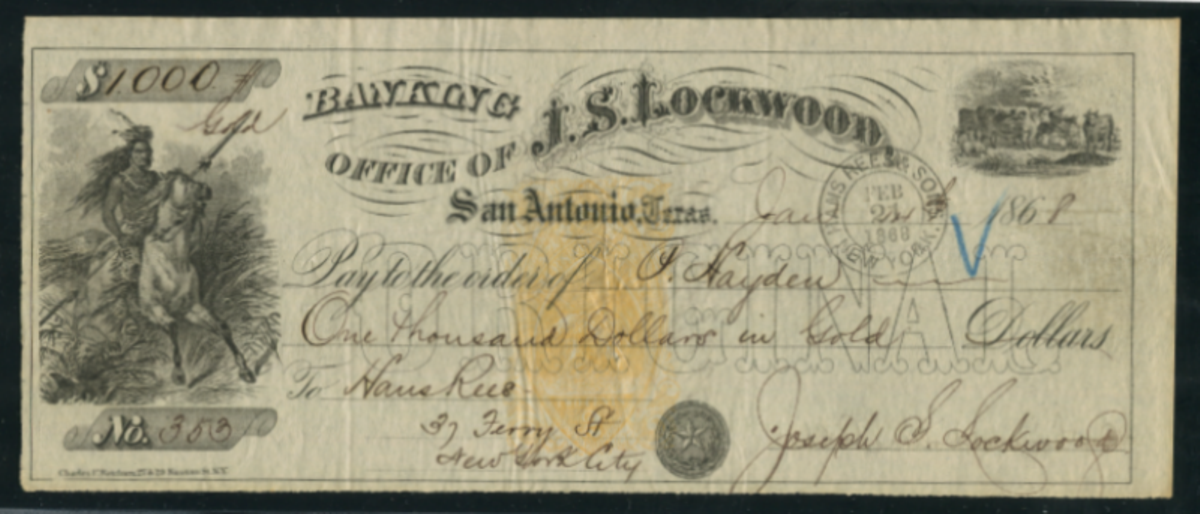 $1000
Gold
BANKING
OFFICE OF J. S. LOCKWOOD,
San Antonio, Texas. Jan 1868
HANS REES & SONS
FEB
1868
NEW YORK
ORIGINAL
Pay to the order of P. Hayden
One thousand Dollars in Gold Dollars
To Hans Rees
37 Ferry St
New York City
Joseph S. Lockwood
No. 353